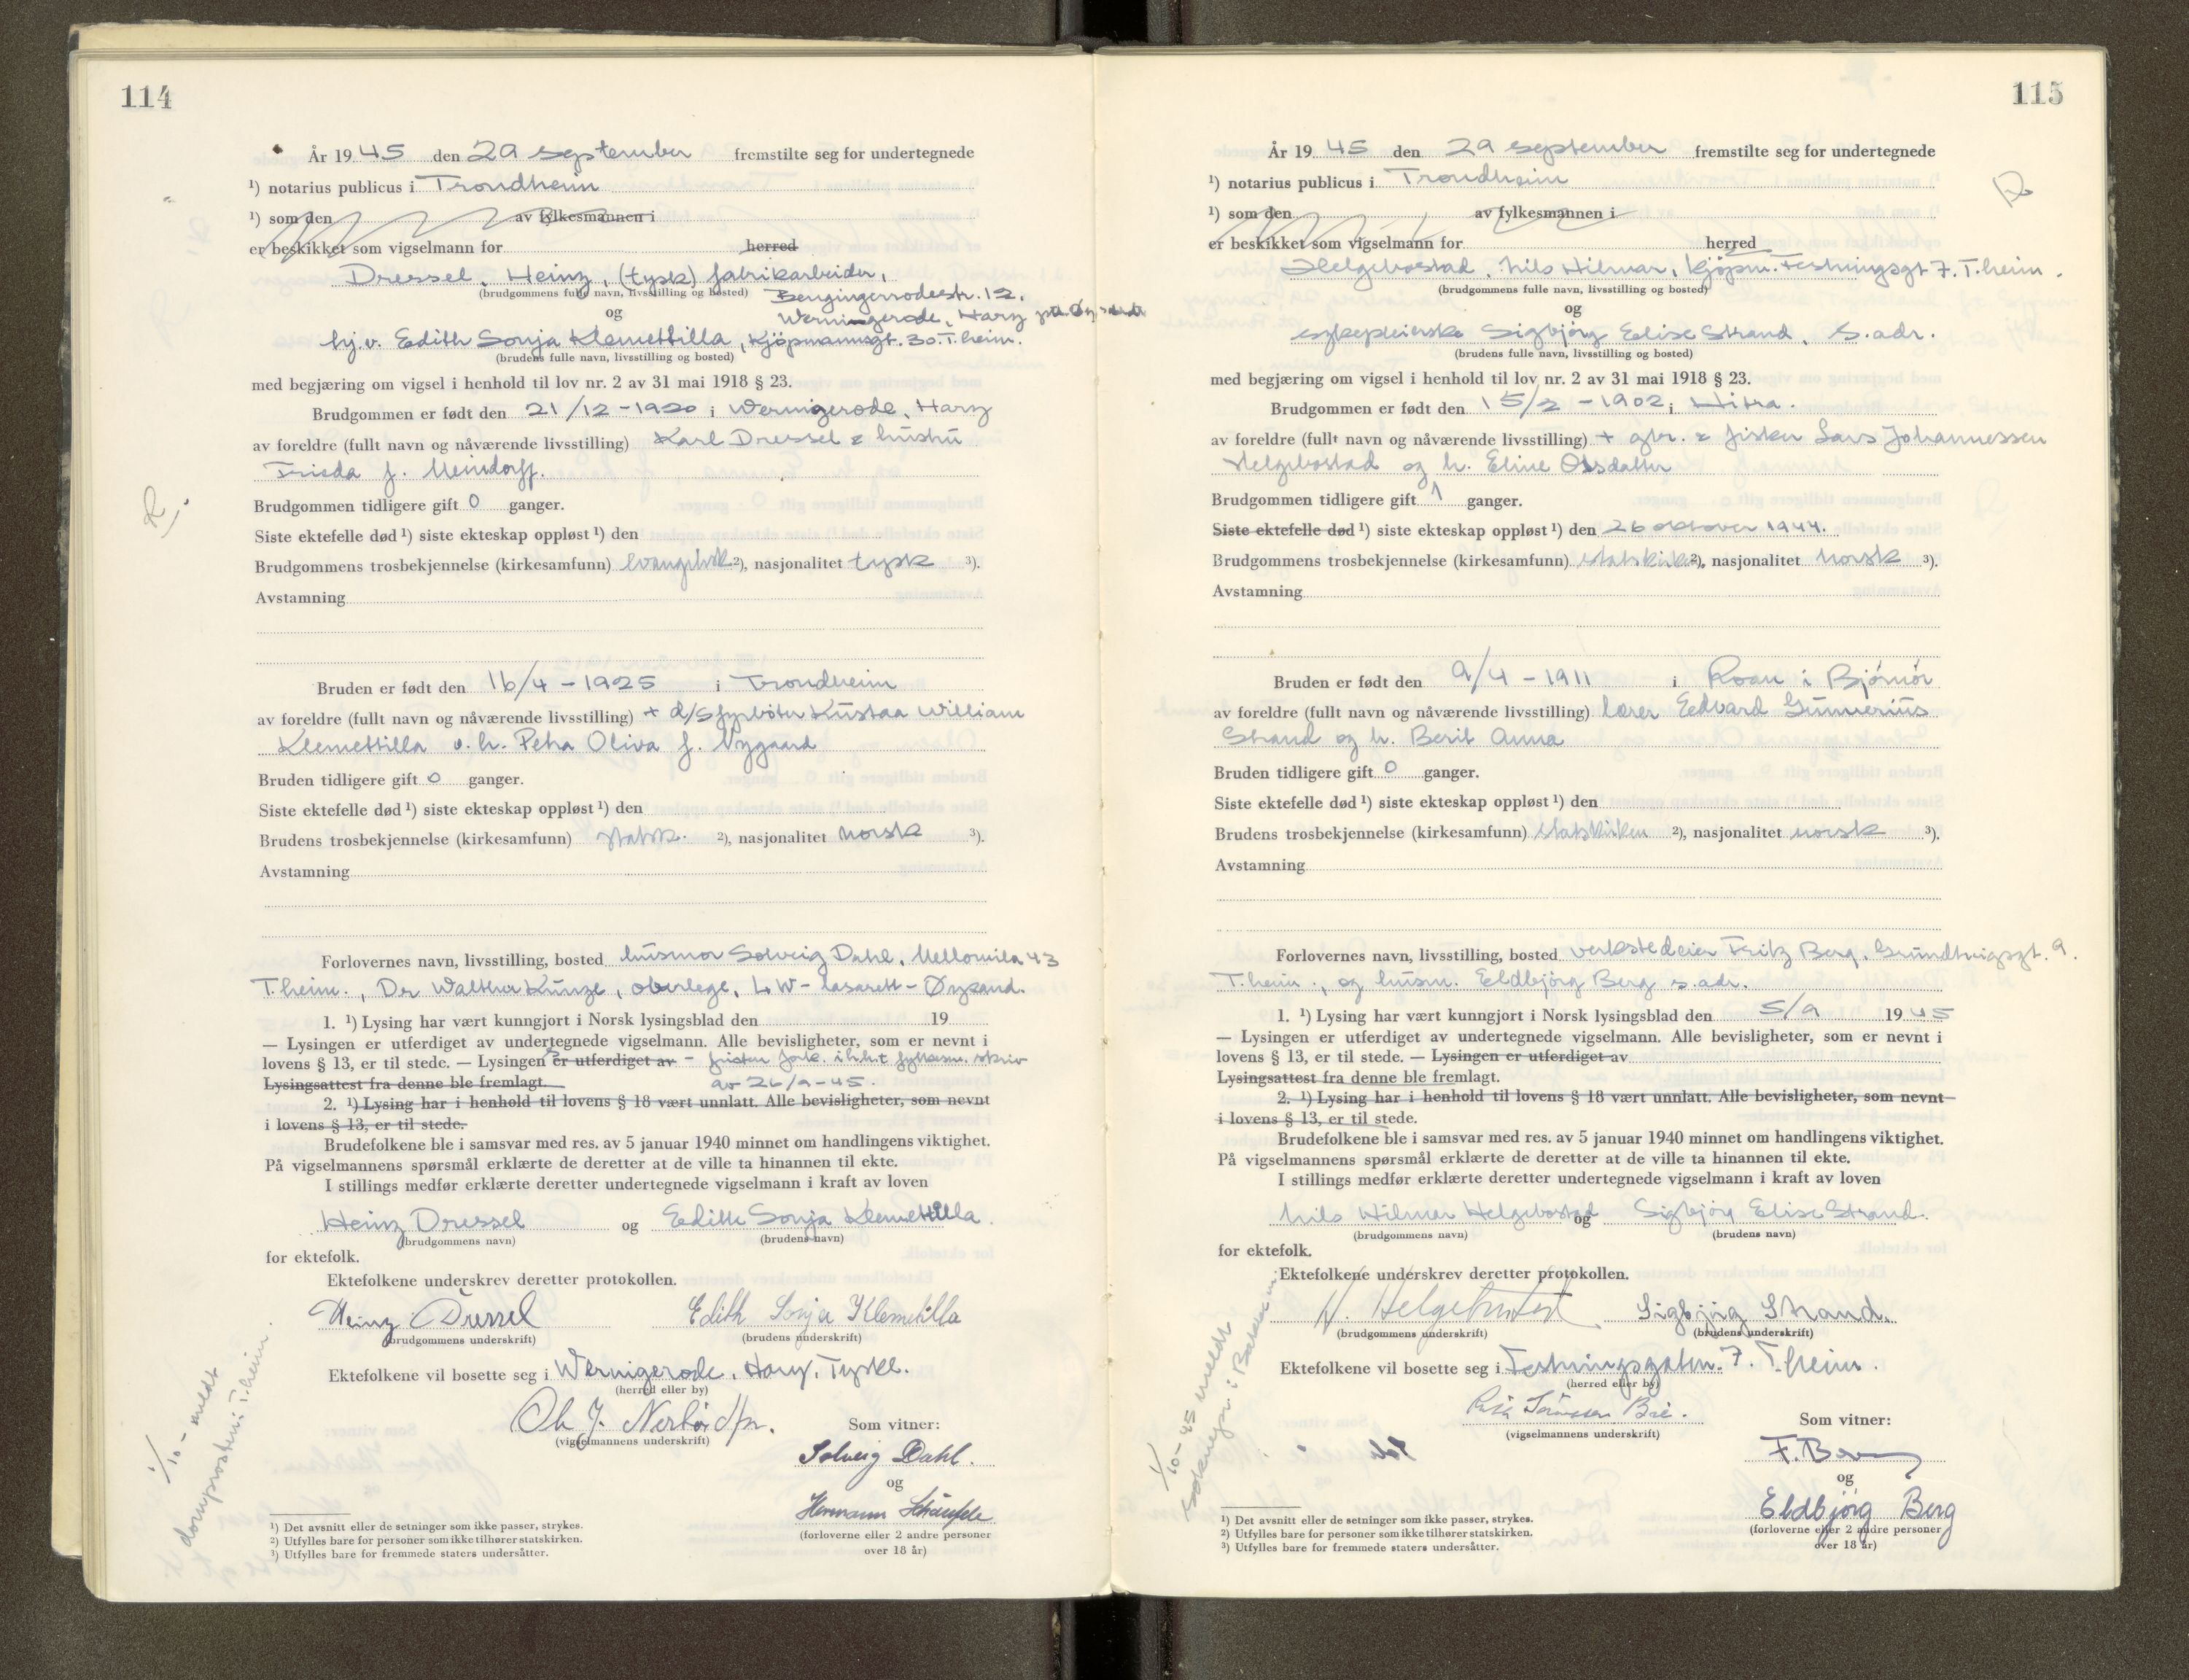 114
År 19 45 den 29 september fremstilte seg for undertegnede
¹) notarius publicus i Trondheim
¹) som den av fylkesmannen i
er beskikket som vigselmann for herred
Dressel, Heinz, (tysk) fabrikarbeider,
(brudgommens fulle navn, livsstilling og bosted) Bengingerrodestr. 12.
og Wernigerode, Harz
hj.v. Edith Sonja Klemettilla, Kjöpmannsgt. 30. T.heim.
(brudens fulle navn, livsstilling og bosted)
med begjæring om vigsel i henhold til lov nr. 2 av 31 mai 1918 § 23.
Brudgommen er født den 21/12 - 1920 i Wernigerode, Harz
av foreldre (fullt navn og nåværende livsstilling) Karl Dressel & hustru
Frieda f. Meindorff.
Brudgommen tidligere gift 0 ganger.
Siste ektefelle død ¹) siste ekteskap oppløst ¹) den
Brudgommens trosbekjennelse (kirkesamfunn) evangelisk ²), nasjonalitet tysk ³).
Avstamning
Bruden er født den 16/4 - 1925 i Trondheim
av foreldre (fullt navn og nåværende livsstilling) + d/s fyrböter Kustaa William
Klemettilla o. h. Petra Oliva f. Nygaard
Bruden tidligere gift 0 ganger.
Siste ektefelle død ¹) siste ekteskap oppløst ¹) den
Brudens trosbekjennelse (kirkesamfunn) statsk. ²), nasjonalitet norsk ³).
Avstamning
Forlovernes navn, livsstilling, bosted husmor Solveig Dahl, Mellomila 43
T.heim., Dr Walther Kunze, oberlege, LW - lasarett - Øysand.
1. ¹) Lysing har vært kunngjort i Norsk lysingsblad den 19
— Lysingen er utferdiget av undertegnede vigselmann. Alle bevisligheter, som er nevnt i
lovens § 13, er til stede. — Lysingen er utferdiget av - fristen fork. i h.h.t. fylkesm. skriv
Lysingsattest fra denne ble fremlagt. av 26/9-45.
2. ¹) Lysing har i henhold til lovens § 18 vært unnlatt. Alle bevisligheter, som nevnt
i lovens § 13, er til stede.
Brudefolkene ble i samsvar med res. av 5 januar 1940 minnet om handlingens viktighet.
På vigselmannens spørsmål erklærte de deretter at de ville ta hinannen til ekte.
I stillings medfør erklærte deretter undertegnede vigselmann i kraft av loven
Heinz Dressel og Edith Sonja Klemettilla.
(brudgommens navn) (brudens navn)
for ektefolk.
Ektefolkene underskrev deretter protokollen.
Heinz Dressel Edith Sonja Klemetilla
(brudgommens underskrift) (brudens underskrift)
Ektefolkene vil bosette seg i Wernigerode, Harz, Tyskl.
(herred eller by)
(vigselmannens underskrift) Som vitner:
Solveig Dahl.
og
Hermann
(forloverne eller 2 andre personer
over 18 år)
1/10 - meldt
domprosten i T.heim.
¹) Det avsnitt eller de setninger som ikke passer, strykes.
²) Utfylles bare for personer som ikke tilhører statskirken.
³) Utfylles bare for fremmede staters undersåtter.
115
År 19 45 den 29 september fremstilte seg for undertegnede
¹) notarius publicus i Trondheim
¹) som den av fylkesmannen i
er beskikket som vigselmann for herred
Helgebostad, Nils Hilmar, kjöpm. Festningsgt 7. T.heim.
(brudgommens fulle navn, livsstilling og bosted)
og
sykepleierske Sigbjörg Elise Strand, s. adr.
(brudens fulle navn, livsstilling og bosted)
med begjæring om vigsel i henhold til lov nr. 2 av 31 mai 1918 § 23.
Brudgommen er født den 15/2 - 1902 i Hitra.
av foreldre (fullt navn og nåværende livsstilling) + gbr. & fisker Lars Johannessen
Helgebostad og h. Eline Olsdatter
Brudgommen tidligere gift 1 ganger.
Siste ektefelle død ¹) siste ekteskap oppløst ¹) den 26 oktober 1944.
Brudgommens trosbekjennelse (kirkesamfunn) statskirk ²), nasjonalitet norsk ³).
Avstamning
Bruden er født den 9/4 - 1911 i Roan i Bjørnør
av foreldre (fullt navn og nåværende livsstilling) lærer Edvard Gunnerius
Strand og h. Berit Anna
Bruden tidligere gift 0 ganger.
Siste ektefelle død ¹) siste ekteskap oppløst ¹) den
Brudens trosbekjennelse (kirkesamfunn) statskirken ²), nasjonalitet norsk ³).
Avstamning
Forlovernes navn, livsstilling, bosted verkstedeier Fritz Berg, Grundtvigsgt. 9.
T.heim., og husm. Eldbjörg Berg s. adr.
1. ¹) Lysing har vært kunngjort i Norsk lysingsblad den 5/9 19 45
— Lysingen er utferdiget av undertegnede vigselmann. Alle bevisligheter, som er nevnt i
lovens § 13, er til stede. — Lysingen er utferdiget av
Lysingsattest fra denne ble fremlagt.
2. ¹) Lysing har i henhold til lovens § 18 vært unnlatt. Alle bevisligheter, som nevnt
i lovens § 13, er til stede.
Brudefolkene ble i samsvar med res. av 5 januar 1940 minnet om handlingens viktighet.
På vigselmannens spørsmål erklærte de deretter at de ville ta hinannen til ekte.
I stillings medfør erklærte deretter undertegnede vigselmann i kraft av loven
Nils Hilmar Helgebostad og Sigbjörg Elise Strand.
(brudgommens navn) (brudens navn)
for ektefolk.
Ektefolkene underskrev deretter protokollen.
N. Helgebostad Sigbjørg Strand.
(brudgommens underskrift) (brudens underskrift)
Ektefolkene vil bosette seg i Festningsgaten 7. T.heim.
(herred eller by)
(vigselmannens underskrift) Som vitner:
F. Berg
og
Eldbjörg Berg
(forloverne eller 2 andre personer
over 18 år)
1/10-45 meldt
soknepr. i
¹) Det avsnitt eller de setninger som ikke passer, strykes.
²) Utfylles bare for personer som ikke tilhører statskirken.
³) Utfylles bare for fremmede staters undersåtter.